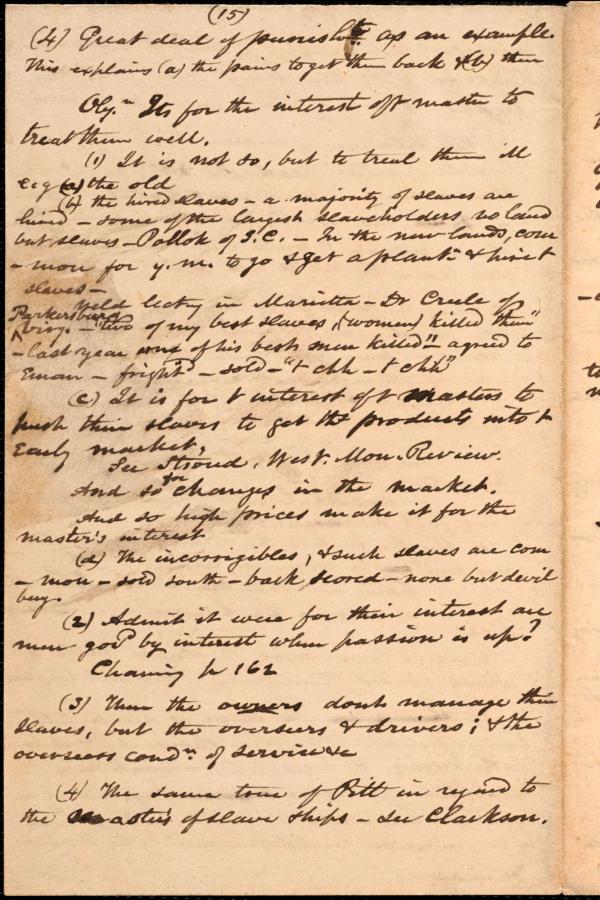 (15)
(4) Great deal of punisht. as an example.
This explains (a) the pains to get them back & (b) then
Obj.n Its for the interest of t master to
treat them well.
(1) It is not so, but to treat them ill
e.g (a) the old
(b) the hired slaves – a majority of slaves are
hired – some of the largest slaveholders no land
but slaves – Pollok of S.C. – In the new lands, com
– mon for y. m. to go & get a plantn & hire t
slaves –
held lectg in Marietta – Dr Creele of
Parkersburg
Virg. – "two of my best slaves, (women) killed them"
– last year one of his best men killed" agreed to
Eman – frightd – sold – "t chh – t chh"
(c) It is for t interest of t masters to
push their slaves to get the products into t
Early market,
See Stroud, West. Mon. Review.
And so for changes in the market.
And so high prices make it for the
master's interest
(d) The incorrigibles, & such slaves are com
– mon – sold south – back scored – none but devil
buy.
(2) Admit it were for their interest are
men govd by interest when passion is up?
Chaning p 162
(3) Then the owners dont manage their
slaves, but the overseers & drivers; & the
overseers condn of service &c
(4) The same true of Pitt in regard to
the masters of slave ships – see Clarkson.